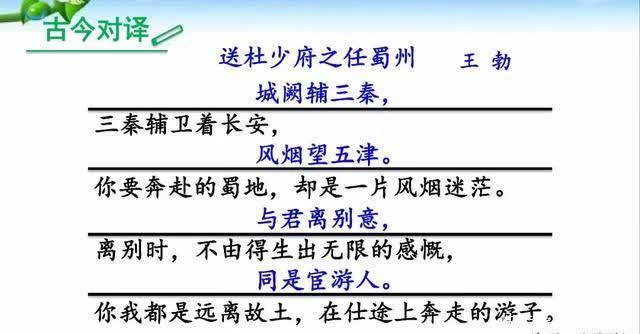 古今对译
送杜少府之任蜀州 王 勃
城阙辅三秦，
三秦辅卫着长安，
风烟望五津。
你要奔赴的蜀地，却是一片风烟迷茫。
与君离别意，
离别时，不由得生出无限的感慨，
同是宦游人。
你我都是远离故土，在仕途上奔走的游子。